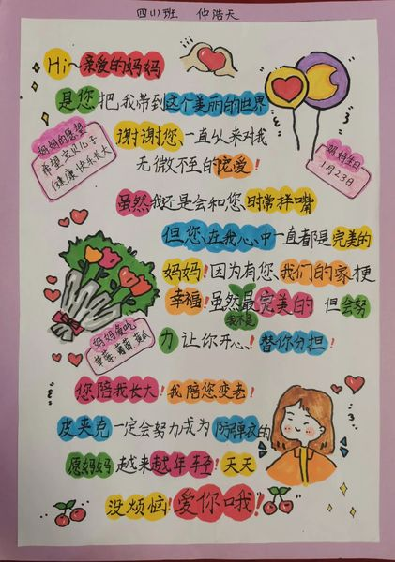 四川班 仇浩天
Hi~亲爱的妈妈
是您把我带到这个美丽的世界
谢谢您、一直以来对我
无微不至的宠爱!
妈妈的愿望
希望宝贝儿子
健康快乐长大
1月23日
虽然我还是会和您时常拌嘴
但您在我心中一直都是完美的
妈妈!因为有您,我们的家梗
幸福!虽然我不是最完美的 但会努
力让你开心!替你分担!
妈妈爱吃
葡萄
您陪我长大!我陪您变老!
皮夹克一定会努力成为防弹衣的
愿妈妈越来越年轻!天天
没烦恼!爱你哦!